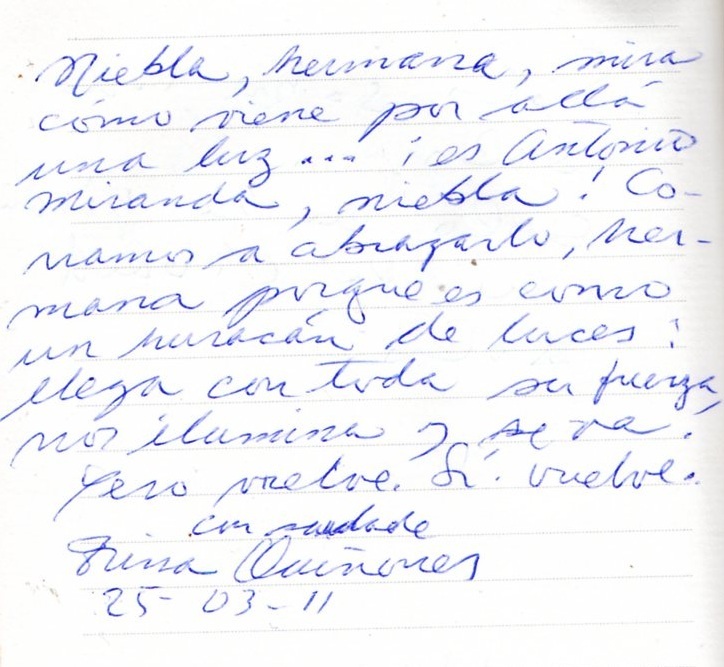 Niebla, hermana, mira
cómo viene por allá
una luz... ¡es Antonio
Miranda, niebla! Co-
rramos a abrazarlo, her-
mana porque es como
un huracán de luces:
llega con toda su fuerza,
nos ilumina y se va.
Pero vuelve. Sí. Vuelve.
con saudade
Quiñones
25-03-11